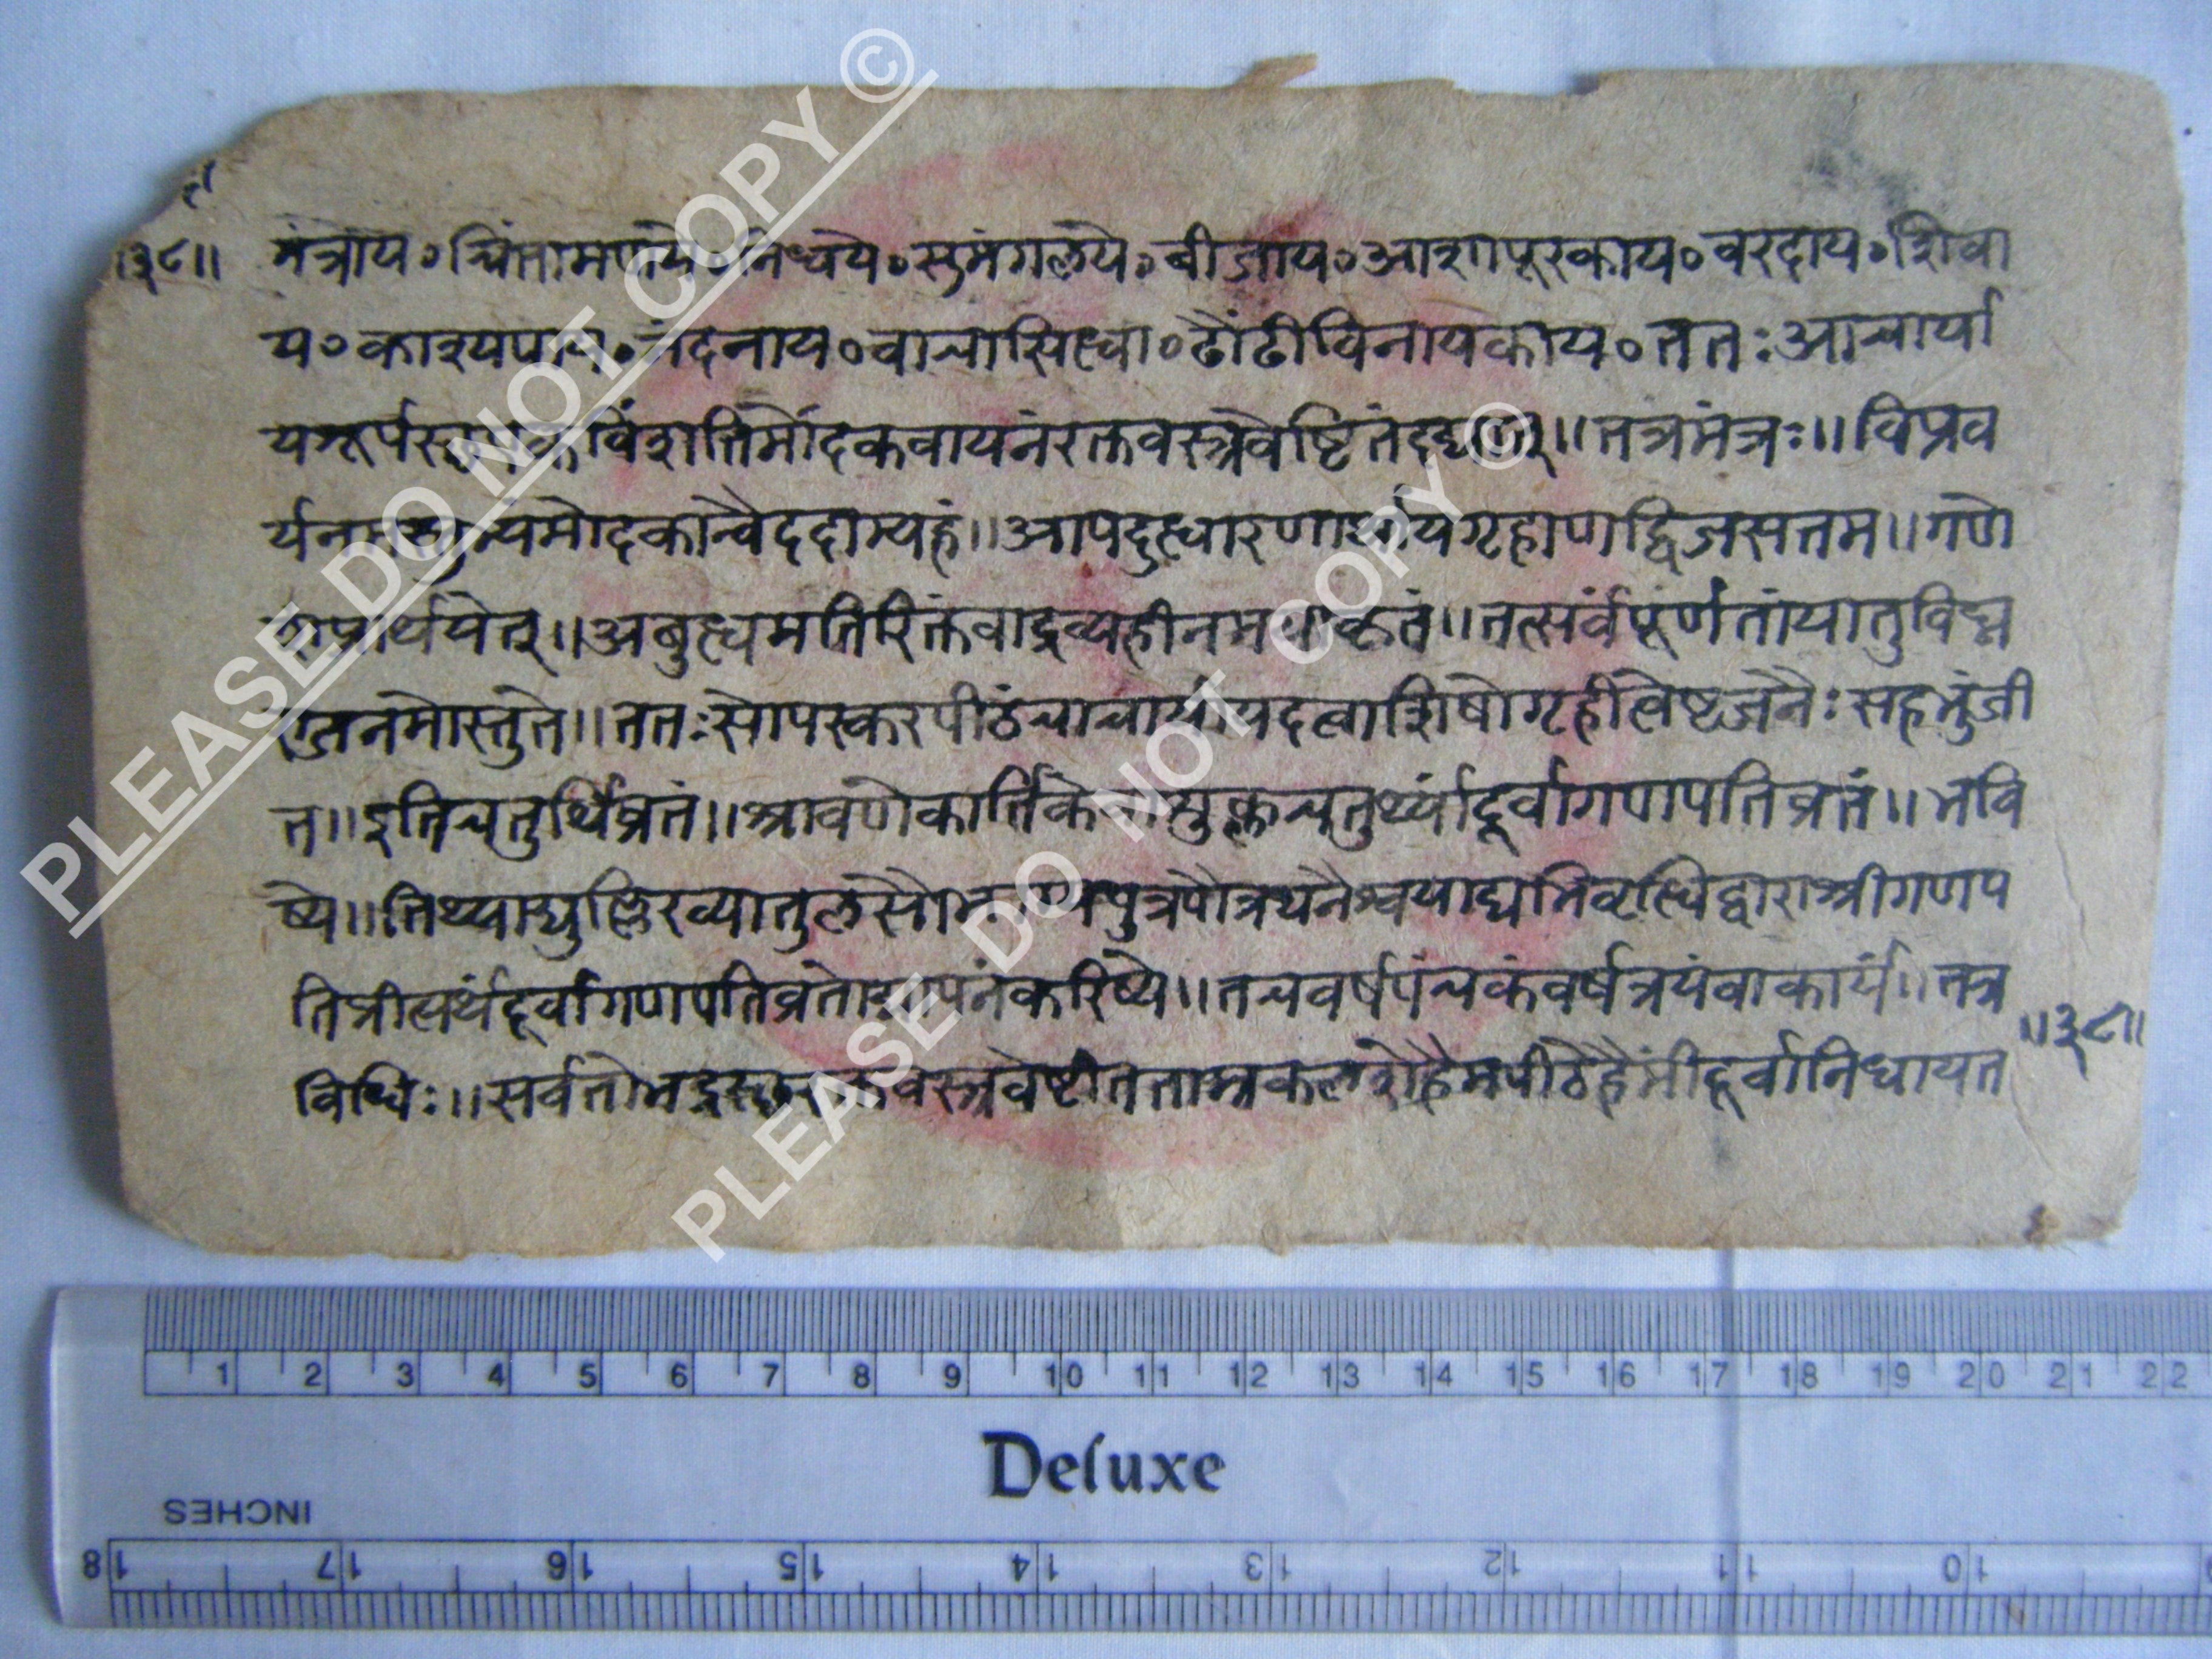 ॥३८॥ मंत्राय॰ चिंतामणये॰ निधये॰ सुमंगलये॰ बीजाय॰ आशापूरकाय॰ वरदाय॰ शिवा
य॰ काश्यपाय॰ नंदनाय॰ वाचासिध्वा॰ ढौंढीविनायकाय॰ ततः आचार्या
विंशतिर्मोदकवायनंरक्तवस्त्रवेष्टितंदद्यात्॥ तत्रमंत्रः॥ विप्रव
र्यनमस्तुभ्यंमोदकान्वैददाम्यहं॥ आपदुध्धारणार्थायगृहाणद्विजसत्तम॥ गणे
शंप्रार्थयेत्॥ अबुध्धमतिरिक्तंवाद्रव्यहीनमथाकृतं॥ तत्सर्वंपूर्णतांयातुविघ्न
नमोस्तुते॥ ततः सोपस्करपीठंचाचार्यायदत्वाशिषोगृहीत्वेष्टजनैः सहभुंजी
त॥ इतिचतुर्थिव्रतं॥ श्रावणेकार्तिकेवाशुक्लचतुर्थ्यांदूर्वागणपतिव्रतं॥ भवि
ष्ये॥ तिथ्याद्युल्लिख्यातुलसौभाग्यपुत्रपौत्रधनैश्वयाद्यभिवृध्धिद्वाराश्रीगणप
तिप्रीत्यर्थंदूर्वागणपतिव्रतोद्यापनंकरिष्ये॥ तचवर्षपंचकंवर्षत्रयंवाकार्यं॥ तत्र
विधिः॥ सर्वतोभद्रस्छरक्तवस्त्रवेष्टीतताम्रकलशेहैमपीठेहैमींदूर्वांनिधायत
॥३८॥
PLEASE DO NOT COPY ©
PLEASE DO NOT COPY ©
1 2 3 4 5 6 7 8 9 10 11 12 13 14 15 16 17 18 19 20 21 22
Deluxe
INCHES
18 17 16 15 14 13 12 11 10